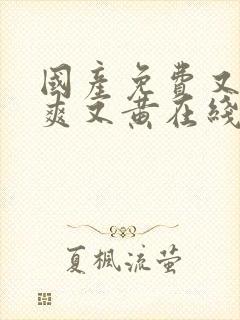 國產免費又
爽又黃在綫
夏楓流萤